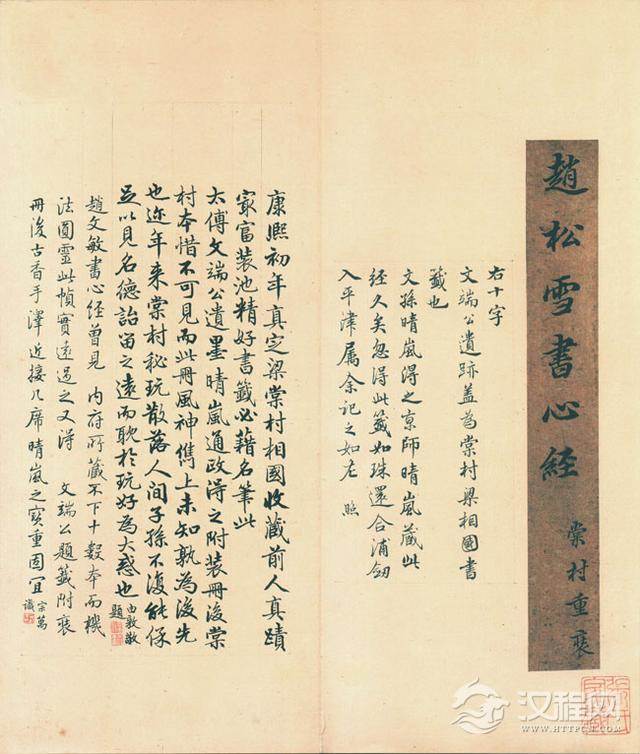 趙松雪書心經
棠村重裝
右十字
文端公遺跡蓋為棠村梁相國書
籤也
文孫晴嵐得之京師晴嵐藏此
經久矣忽得此籤如珠還合浦劒
入平津屬余記之如左 照
康熙初年真定梁棠村相國收藏前人真蹟
家富裝池精好書籤必藉名筆此
太傅文端公遺墨晴嵐通政得之附裝冊後棠
村本惜不可見而此冊風神儁上未知孰為後先
也近年來棠村秘玩散落人間子孫不復能保
足以見名德詒留之遠而耽於玩好為大惑也 由敦敬
題
趙文敏書心經曾見 內府所藏不下十數本而機
法圓靈此幀實遠過之又得 文端公題籤附裝
冊後古香手澤近接几席晴嵐之寶重固宜 宗萬
識
汉程网
WWW.HTTPCN.COM